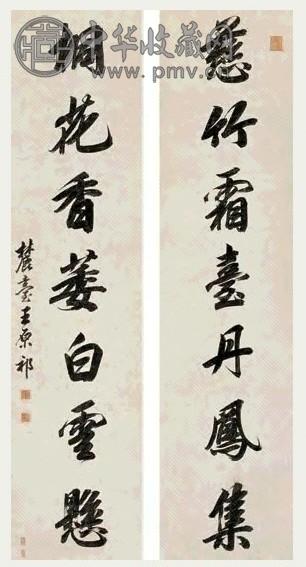 慈竹霜臺丹鳳集
桐花香萎白雲懸
麓臺王原祁
中华收藏网
www.pmv.cn